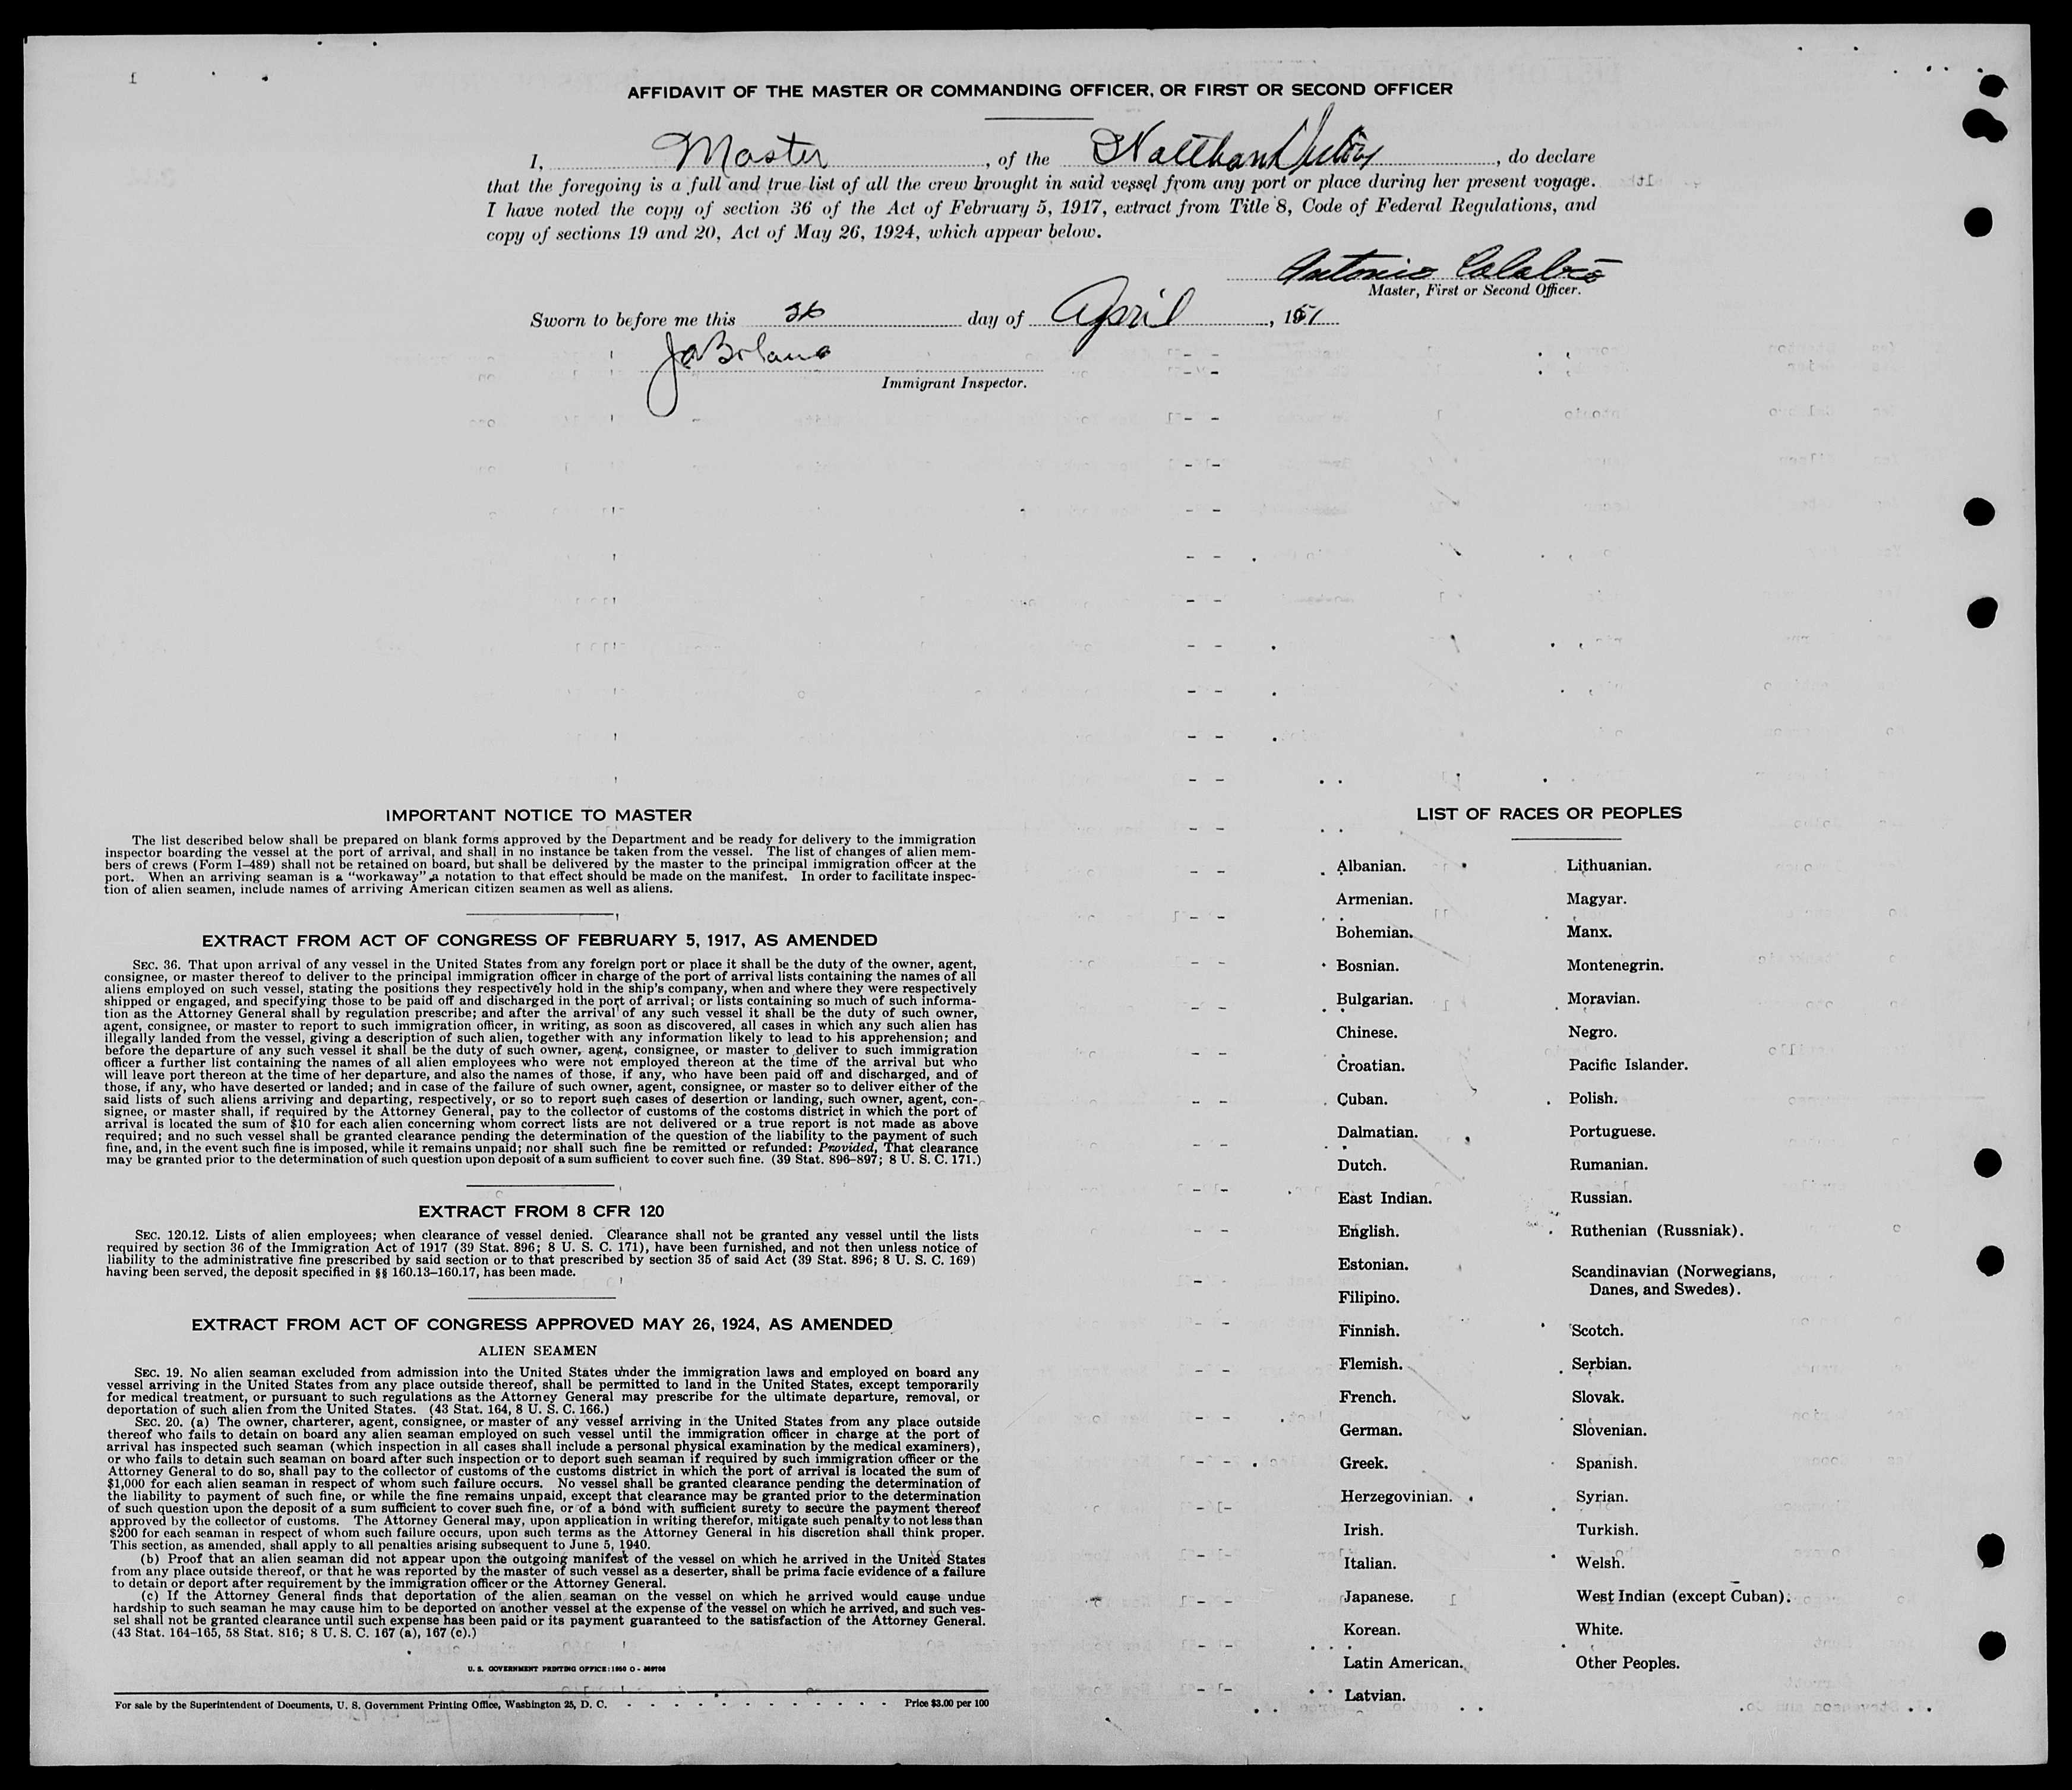 AFFIDAVIT OF THE MASTER OR COMMANDING OFFICER, OR FIRST OR SECOND OFFICER
I, Master, of the Waltham Victory, do declare
that the foregoing is a full and true list of all the crew brought in said vessel from any port or place during her present voyage.
I have noted the copy of section 36 of the Act of February 5, 1917, extract from Title 8, Code of Federal Regulations, and
copy of sections 19 and 20, Act of May 26, 1924, which appear below.
Antonio Calabro
Master, First or Second Officer.
Sworn to before me this 26 day of April, 1951
Immigrant Inspector.
IMPORTANT NOTICE TO MASTER
The list described below shall be prepared on blank forms approved by the Department and be ready for delivery to the immigration
inspector boarding the vessel at the port of arrival, and shall in no instance be taken from the vessel. The list of changes of alien mem-
bers of crews (Form I–489) shall not be retained on board, but shall be delivered by the master to the principal immigration officer at the
port. When an arriving seaman is a "workaway" a notation to that effect should be made on the manifest. In order to facilitate inspec-
tion of alien seamen, include names of arriving American citizen seamen as well as aliens.
EXTRACT FROM ACT OF CONGRESS OF FEBRUARY 5, 1917, AS AMENDED
SEC. 36. That upon arrival of any vessel in the United States from any foreign port or place it shall be the duty of the owner, agent,
consignee, or master thereof to deliver to the principal immigration officer in charge of the port of arrival lists containing the names of all
aliens employed on such vessel, stating the positions they respectively hold in the ship's company, when and where they were respectively
shipped or engaged, and specifying those to be paid off and discharged in the port of arrival; or lists containing so much of such informa-
tion as the Attorney General shall by regulation prescribe; and after the arrival of any such vessel it shall be the duty of such owner,
agent, consignee, or master to report to such immigration officer, in writing, as soon as discovered, all cases in which any such alien has
illegally landed from the vessel, giving a description of such alien, together with any information likely to lead to his apprehension; and
before the departure of any such vessel it shall be the duty of such owner, agent, consignee, or master to deliver to such immigration
officer a further list containing the names of all alien employees who were not employed thereon at the time of the arrival but who
will leave port thereon at the time of her departure, and also the names of those, if any, who have been paid off and discharged, and of
those, if any, who have deserted or landed; and in case of the failure of such owner, agent, consignee, or master so to deliver either of the
said lists of such aliens arriving and departing, respectively, or so to report such cases of desertion or landing, such owner, agent, con-
signee, or master shall, if required by the Attorney General, pay to the collector of customs of the costoms district in which the port of
arrival is located the sum of $10 for each alien concerning whom correct lists are not delivered or a true report is not made as above
required; and no such vessel shall be granted clearance pending the determination of the question of the liability to the payment of such
fine, and, in the event such fine is imposed, while it remains unpaid; nor shall such fine be remitted or refunded: Provided, That clearance
may be granted prior to the determination of such question upon deposit of a sum sufficient to cover such fine. (39 Stat. 896–897; 8 U. S. C. 171.)
EXTRACT FROM 8 CFR 120
SEC. 120.12. Lists of alien employees; when clearance of vessel denied. Clearance shall not be granted any vessel until the lists
required by section 36 of the Immigration Act of 1917 (39 Stat. 896; 8 U. S. C. 171), have been furnished, and not then unless notice of
liability to the administrative fine prescribed by said section or to that prescribed by section 35 of said Act (39 Stat. 896; 8 U. S. C. 169)
having been served, the deposit specified in §§ 160.13–160.17, has been made.
EXTRACT FROM ACT OF CONGRESS APPROVED MAY 26, 1924, AS AMENDED
ALIEN SEAMEN
SEC. 19. No alien seaman excluded from admission into the United States under the immigration laws and employed on board any
vessel arriving in the United States from any place outside thereof, shall be permitted to land in the United States, except temporarily
for medical treatment, or pursuant to such regulations as the Attorney General may prescribe for the ultimate departure, removal, or
deportation of such alien from the United States. (43 Stat. 164, 8 U. S. C. 166.)
SEC. 20. (a) The owner, charterer, agent, consignee, or master of any vessel arriving in the United States from any place outside
thereof who fails to detain on board any alien seaman employed on such vessel until the immigration officer in charge at the port of
arrival has inspected such seaman (which inspection in all cases shall include a personal physical examination by the medical examiners),
or who fails to detain such seaman on board after such inspection or to deport such seaman if required by such immigration officer or the
Attorney General to do so, shall pay to the collector of customs of the customs district in which the port of arrival is located the sum of
$1,000 for each alien seaman in respect of whom such failure occurs. No vessel shall be granted clearance pending the determination of
the liability to payment of such fine, or while the fine remains unpaid, except that clearance may be granted prior to the determination
of such question upon the deposit of a sum sufficient to cover such fine, or of a bond with sufficient surety to secure the payment thereof
approved by the collector of customs. The Attorney General may, upon application in writing therefor, mitigate such penalty to not less than
$200 for each seaman in respect of whom such failure occurs, upon such terms as the Attorney General in his discretion shall think proper.
This section, as amended, shall apply to all penalties arising subsequent to June 5, 1940.
(b) Proof that an alien seaman did not appear upon the outgoing manifest of the vessel on which he arrived in the United States
from any place outside thereof, or that he was reported by the master of such vessel as a deserter, shall be prima facie evidence of a failure
to detain or deport after requirement by the immigration officer or the Attorney General.
(c) If the Attorney General finds that deportation of the alien seaman on the vessel on which he arrived would cause undue
hardship to such seaman he may cause him to be deported on another vessel at the expense of the vessel on which he arrived, and such ves-
sel shall not be granted clearance until such expense has been paid or its payment guaranteed to the satisfaction of the Attorney General.
(43 Stat. 164–165, 58 Stat. 816; 8 U. S. C. 167 (a), 167 (c).)
U. S. GOVERNMENT PRINTING OFFICE: 1950 O -
For sale by the Superintendent of Documents, U. S. Government Printing Office, Washington 25, D. C. - - - - - - - - - - - - Price $3.00 per 100
LIST OF RACES OR PEOPLES
Albanian.
Armenian.
Bohemian.
Bosnian.
Bulgarian.
Chinese.
Croatian.
Cuban.
Dalmatian.
Dutch.
East Indian.
English.
Estonian.
Filipino.
Finnish.
Flemish.
French.
German.
Greek.
Herzegovinian.
Irish.
Italian.
Japanese.
Korean.
Latin American.
Latvian.
Lithuanian.
Magyar.
Manx.
Montenegrin.
Moravian.
Negro.
Pacific Islander.
Polish.
Portuguese.
Rumanian.
Russian.
Ruthenian (Russniak).
Scandinavian (Norwegians,
Danes, and Swedes).
Scotch.
Serbian.
Slovak.
Slovenian.
Spanish.
Syrian.
Turkish.
Welsh.
West Indian (except Cuban).
White.
Other Peoples.